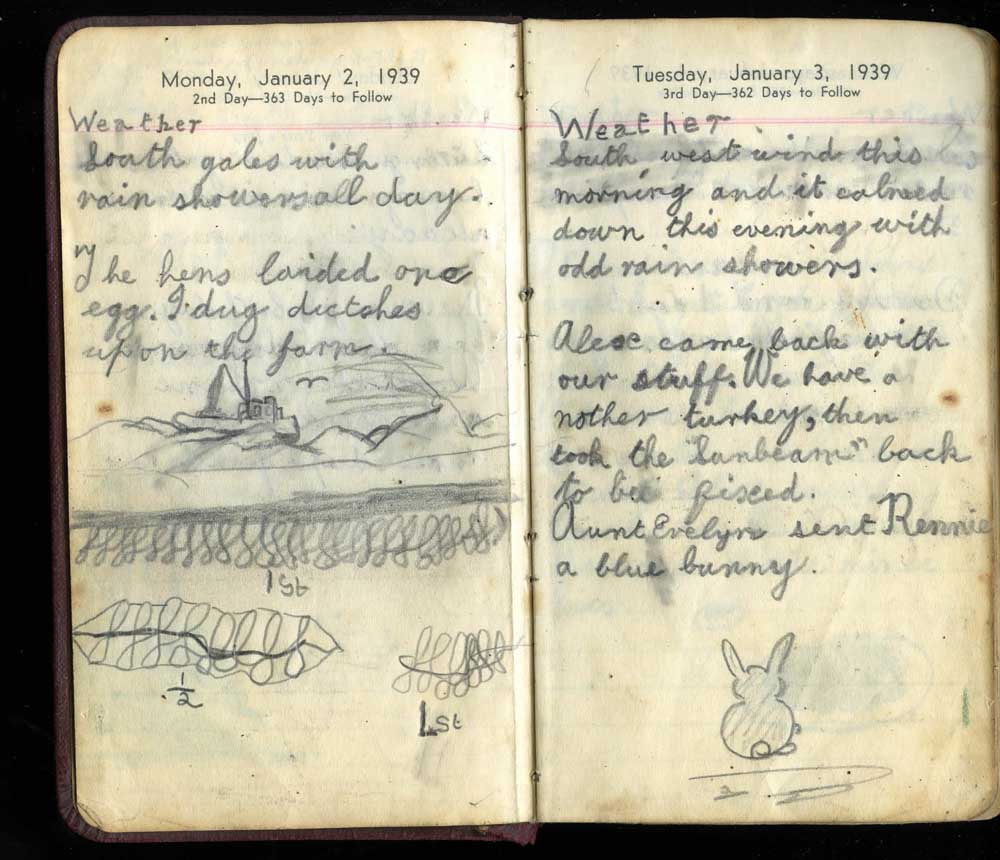 Monday, January 2, 1939
2nd Day—363 Days to Follow
Weather
South gales with
rain showers all day.
The hens laided one
egg. I dug dictches
up on the farm.
1st
1/2
1st
Tuesday, January 3, 1939
3rd Day—362 Days to Follow
Weather
South west wind this
morning and it calmed
down this evening with
odd rain showers.
Alex came back with
our stuff. We have a
nother turkey, then
took the "Sunbeam" back
to be fixed.
Aunt Evelyn sent Rennie
a blue bunny.